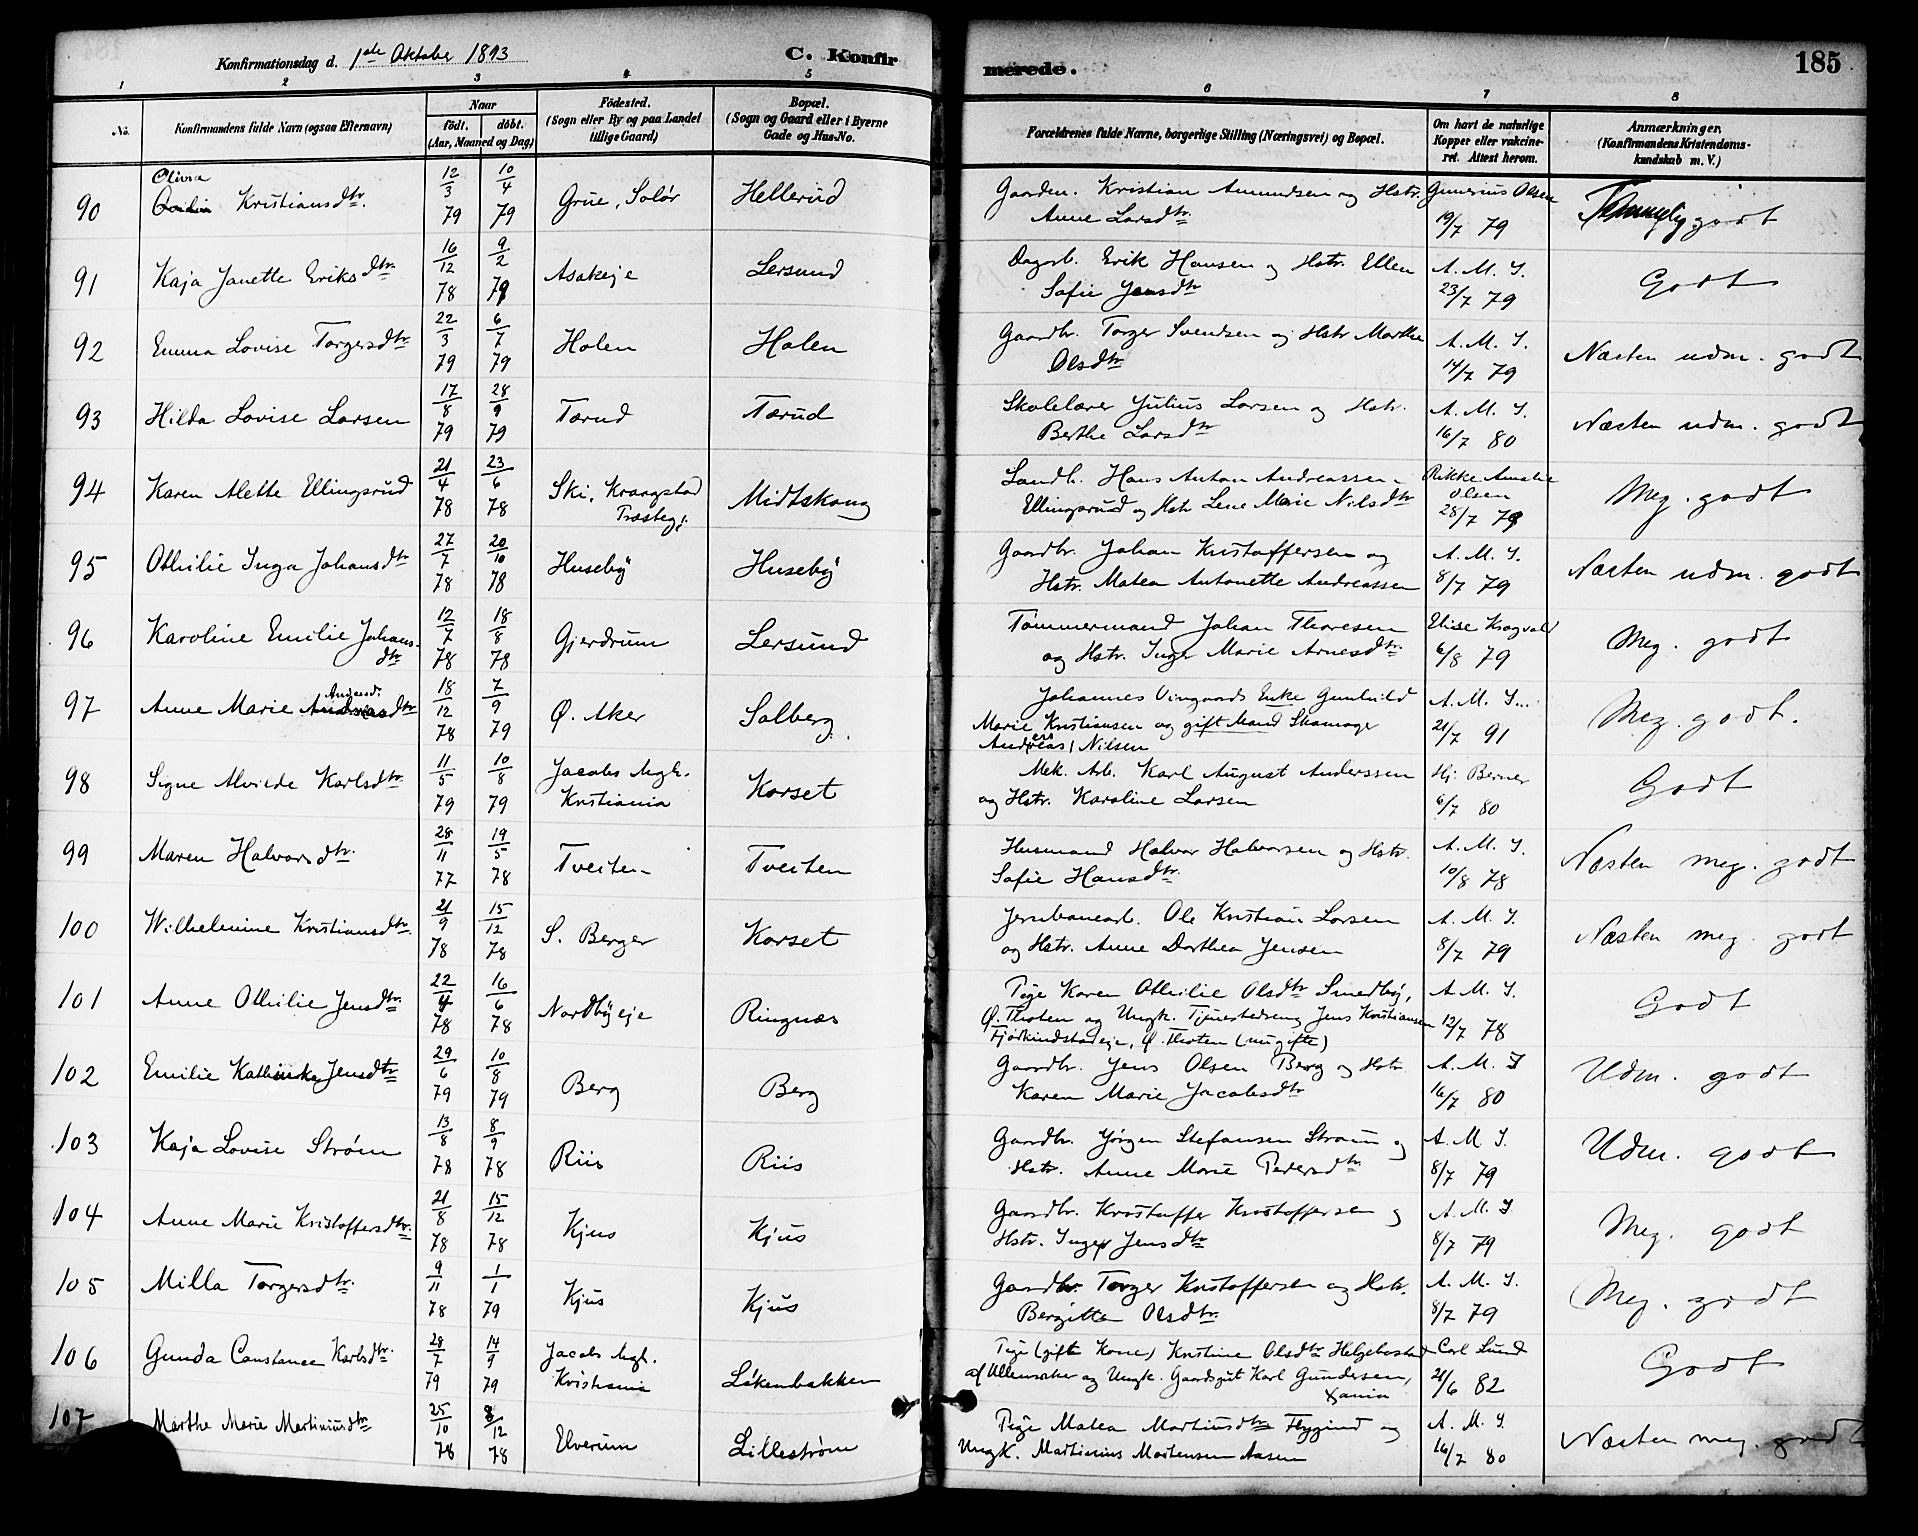 Konfirmationsdag d. 1ste Oktober 1893 C. Konfirmerede. 185
1 2 3 4 5 6 7 8
No. Konfirmandens fulde Navn (ogsaa Efternavn) Naar født, døbt. (Aar, Maaned og Dag) Fødested. (Sogn eller By og paa Landet tillige Gaard) Bopæl. (Sogn og Gaard eller i Byerne Gade og Hus-No. Forældrenes fulde Navne, borgerlige Stilling (Næringsvei) og Bopæl. Om havt de naturlige Kopper eller vakcineret. Attest herom. Anmærkninger, (Konfirmandens Kristendomskundskab m. V.)
90 Olivia Kristiansdtr. 12/3 79 10/4 79 Grue, Solør Hellerud Gaarden. Kristian Amundsen og Hstr. Anne Larsdtr. Gunerius Olsen 19/7 79 Temmelig godt
91 Kaja Janette Eriksdtr. 16/12 78 9/2 79 Asakeje Lersund Dagarb. Erik Hansen og Hstr. Ellen Sofie Jensdtr A. M. I. 23/7 79 Godt
92 Emma Lovise Torgersdtr 22/3 79 6/7 79 Holen Holen Gaardbr. Torger Svendsen og Hstr Marthe Olsdtr A. M. I. 14/7 79 Næsten udm. godt
93 Hilda Lovise Larsen 17/8 79 28/9 79 Tærud Tærud Skolelærer Julius Larsen og Hstr. Berthe Larsdtr A. M. I. 16/7 80 Næsten udm. godt
94 Karen Alette Ellingsrud 21/4 78 23/6 78 Ski, Kraagstad Præsteg. Midtskoug Landh. Hans Anton Andreassen Ellingsrud og Hstr Lene Marie Nilsdtr Rikke Amalie Olsen 28/7 79 Meg. godt
95 Othilie Inga Johansdtr 27/7 78 20/10 78 Huseby Huseby Gaardbr. Johan Kristoffersen og Hstr. Matea Antonette Andreassen A. M. I. 8/7 79 Næsten udm. godt
96 Karoline Emilie Johansdtr 12/7 78 18/8 78 Gjerdrum Lersund Tømmermand Johan Thoresen og Hstr. Inger Marie Arnesdtr. Elise Kragvald 6/8 79 Meg. godt
97 Anne Marie Andreasdtr 18/12 78 7/9 79 Ø. Aker Solberg Johannes Vingaards Enke Gunhild Marie Kristiansen og gift Mand Skomager Andreas Nilsen A. M. I. 21/7 91 Meg. godt.
98 Signe Alvilde Karlsdtr. 11/5 79 10/8 79 Jacobs Mgh. Kristiania Korset Mek. Arb. Karl August Anderssen og Hstr. Karoline Larsen Hj. Berner 6/7 80 Godt
99 Maren Halvorsdtr. 28/11 77 19/5 78 Tveiten Tveiten Husmand Halvor Halvorsen og Hstr. Sofie Hansdtr. A. M. I. 10/8 78 Næsten meg. godt
100 Wilhelmine Kristiansdtr. 21/9 78 15/12 78 S. Berger Korset Jernbanearb. Ole Kristian Larsen og Hstr. Anne Dorthea Jensen A. M. I. 8/7 79 Næsten meg. godt
101 Anne Othilie Jensdtr. 22/4 78 16/6 78 Nordbyeje Ringnæs Pige Karen Othilie Olsdtr Smedby, Ø. Thoten og Ungk. Tjenestedreng Jens Kristiansen Fjørkindstadeje, Ø. Thoten (nugifte) A. M. I. 12/7 78 Godt
102 Emilie Kathinka Jensdtr 29/6 79 10/8 79 Berg Berg Gaardbr. Jens Olsen Berg og Hstr Karen Marie Jacobsdtr A. M. I 16/7 80 Udm. godt
103 Kaja Lovise Strøm 13/8 78 8/9 78 Riis Riis Gaardbr. Jørgen Stefansen Strøm og Hstr. Anne Marie Pedersdtr A. M I. 8/7 79 Udm. godt
104 Anne Marie Kristoffersdtr. 21/8 78 15/12 78 Kjus Kjus Gaardbr. Kristoffer Kristoffersen og Hstr. Inger Jensdtr A. M. I 8/7 79 Meg. godt
105 Milla Torgersdtr. 9/11 78 1/1 79 Kjus Kjus Gaardbr. Torger Kristoffersen og Hstr. Bergitte Olsdtr. A. M. I. 8/7 79 Meg. godt
106 Gunda Constance Karlsdtr. 28/7 79 14/9 79 Jacobs Mgh. Kristiania Løkenbakken Pige (gift Kone) Kristine Olsdtr Helgebostad af Ullensaker og Ungk. Gaardsgut Karl Gundersen, Xania Carl Lund 21/6 82 Godt
107 Marthe Marie Martiniusdtr 25/10 78 8/12 78 Elverum Lillestrøm Pige Matea Martinsdtr Flygind og Ungk. Martinius Mortensen Aasen A. M. I. 16/7 80 Næsten meg. godt